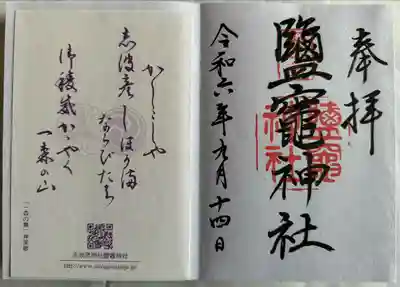 奉拝
鹽竈神社
令和六年九月十四日
かしこしや
志波彦しほかま
ならびたち
御稜威かゞやく
一森の山
志波彦神社鹽竈神社
http://www.shiogamajinja.jp/